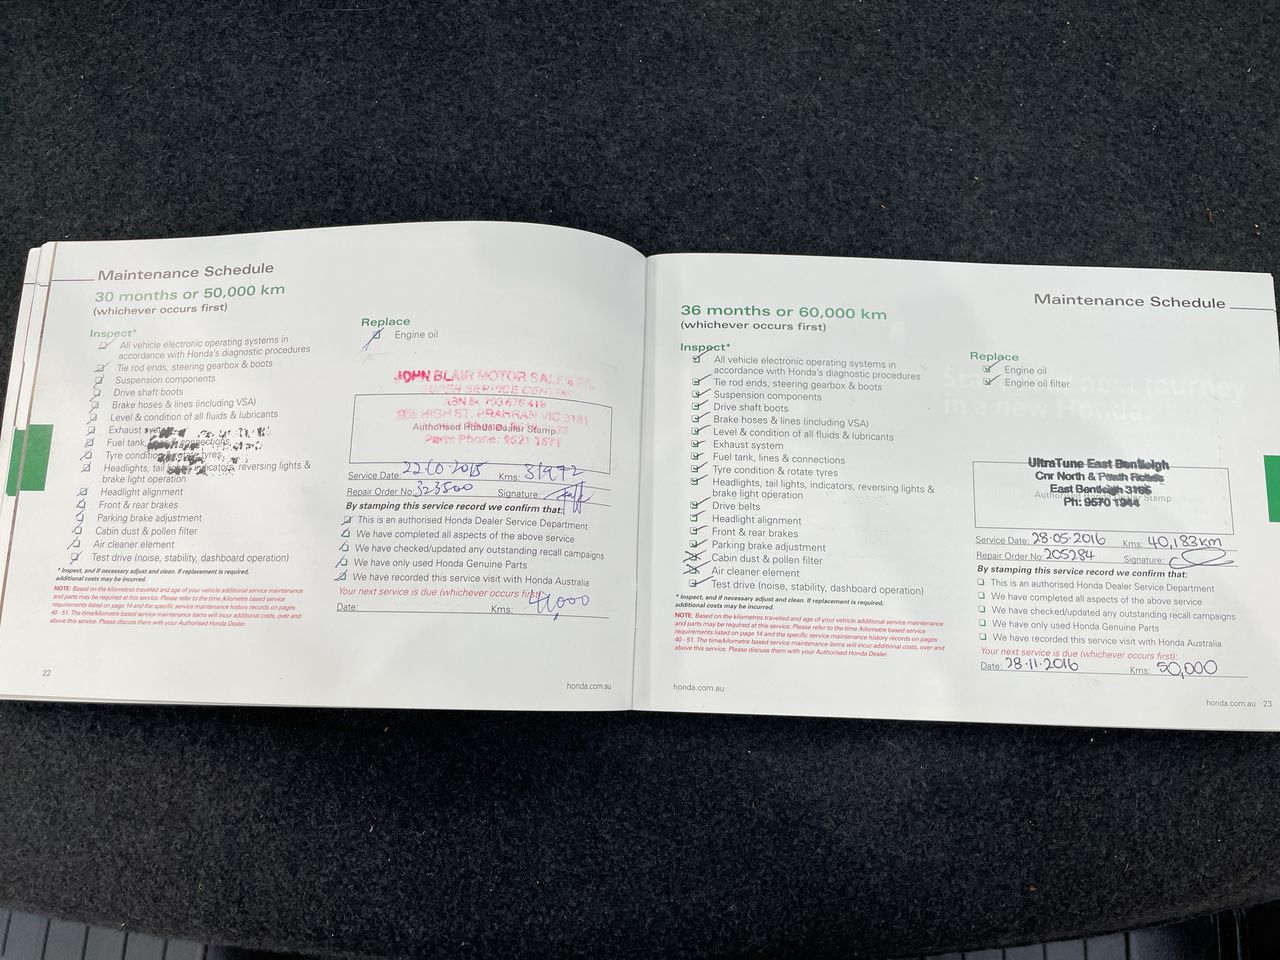 Maintenance Schedule
30 months or 50,000 km
(whichever occurs first)
Inspect*
All vehicle electronic operating systems in
accordance with Honda's diagnostic procedures
Tie rod ends, steering gearbox & boots
Suspension components
Drive shaft boots
Brake hoses & lines (including VSA)
Level & condition of all fluids & lubricants
Exhaust
Fuel tank, connections
Tyre condition tyres
Headlights, tail indicators, reversing lights &
brake light operation
Headlight alignment
Front & rear brakes
Parking brake adjustment
Cabin dust & pollen filter
Air cleaner element
Test drive (noise, stability, dashboard operation)
* Inspect, and if necessary adjust and clean. If replacement is required,
additional costs may be incurred.
NOTE: Based on the kilometres travelled and age of your vehicle additional service maintenance
and parts may be required at this service. Please refer to the time /kilometre based service
requirements listed on page 14 and the specific service maintenance history records on pages
40 - 51. The time/kilometre based service maintenance items will incur additional costs, over and
above this service. Please discuss them with your Authorised Honda Dealer.
22
Replace
Engine oil
JOHN BLAIR MOTOR SALES P/L
SUPER SERVICE CENTRE
HIGH ST. PRAHRAN VIC 3181
Authorised Honda Dealer Stamp
Parts Phone: 9521 1671
Service Date: Kms: 31972
Repair Order No: 323500 Signature:
By stamping this service record we confirm that:
This is an authorised Honda Dealer Service Department
We have completed all aspects of the above service
We have checked/updated any outstanding recall campaigns
We have only used Honda Genuine Parts
We have recorded this service visit with Honda Australia
Your next service is due (whichever occurs first):
Date: Kms: 41,000
honda.com.au
Maintenance Schedule
36 months or 60,000 km
(whichever occurs first)
Inspect*
All vehicle electronic operating systems in
accordance with Honda's diagnostic procedures
Tie rod ends, steering gearbox & boots
Suspension components
Drive shaft boots
Brake hoses & lines (including VSA)
Level & condition of all fluids & lubricants
Exhaust system
Fuel tank, lines & connections
Tyre condition & rotate tyres
Headlights, tail lights, indicators, reversing lights &
brake light operation
Drive belts
Headlight alignment
Front & rear brakes
Parking brake adjustment
Cabin dust & pollen filter
Air cleaner element
Test drive (noise, stability, dashboard operation)
* Inspect, and if necessary adjust and clean. If replacement is required,
additional costs may be incurred.
NOTE: Based on the kilometres travelled and age of your vehicle additional service maintenance
and parts may be required at this service. Please refer to the time /kilometre based service
requirements listed on page 14 and the specific service maintenance history records on pages
40 - 51. The time/kilometre based service maintenance items will incur additional costs, over and
above this service. Please discuss them with your Authorised Honda Dealer.
honda.com.au
Replace
Engine oil
Engine oil filter
in a new Honda.
UltraTune East Bentleigh
Cnr North &
East Bentleigh 3165
Ph: 9570 1944
Service Date: 28.05.2016 Kms: 40,183km
Repair Order No: 205284 Signature:
By stamping this service record we confirm that:
This is an authorised Honda Dealer Service Department
We have completed all aspects of the above service
We have checked/updated any outstanding recall campaigns
We have only used Honda Genuine Parts
We have recorded this service visit with Honda Australia
Your next service is due (whichever occurs first):
Date: 28.11.2016 Kms: 50,000
honda.com.au 23